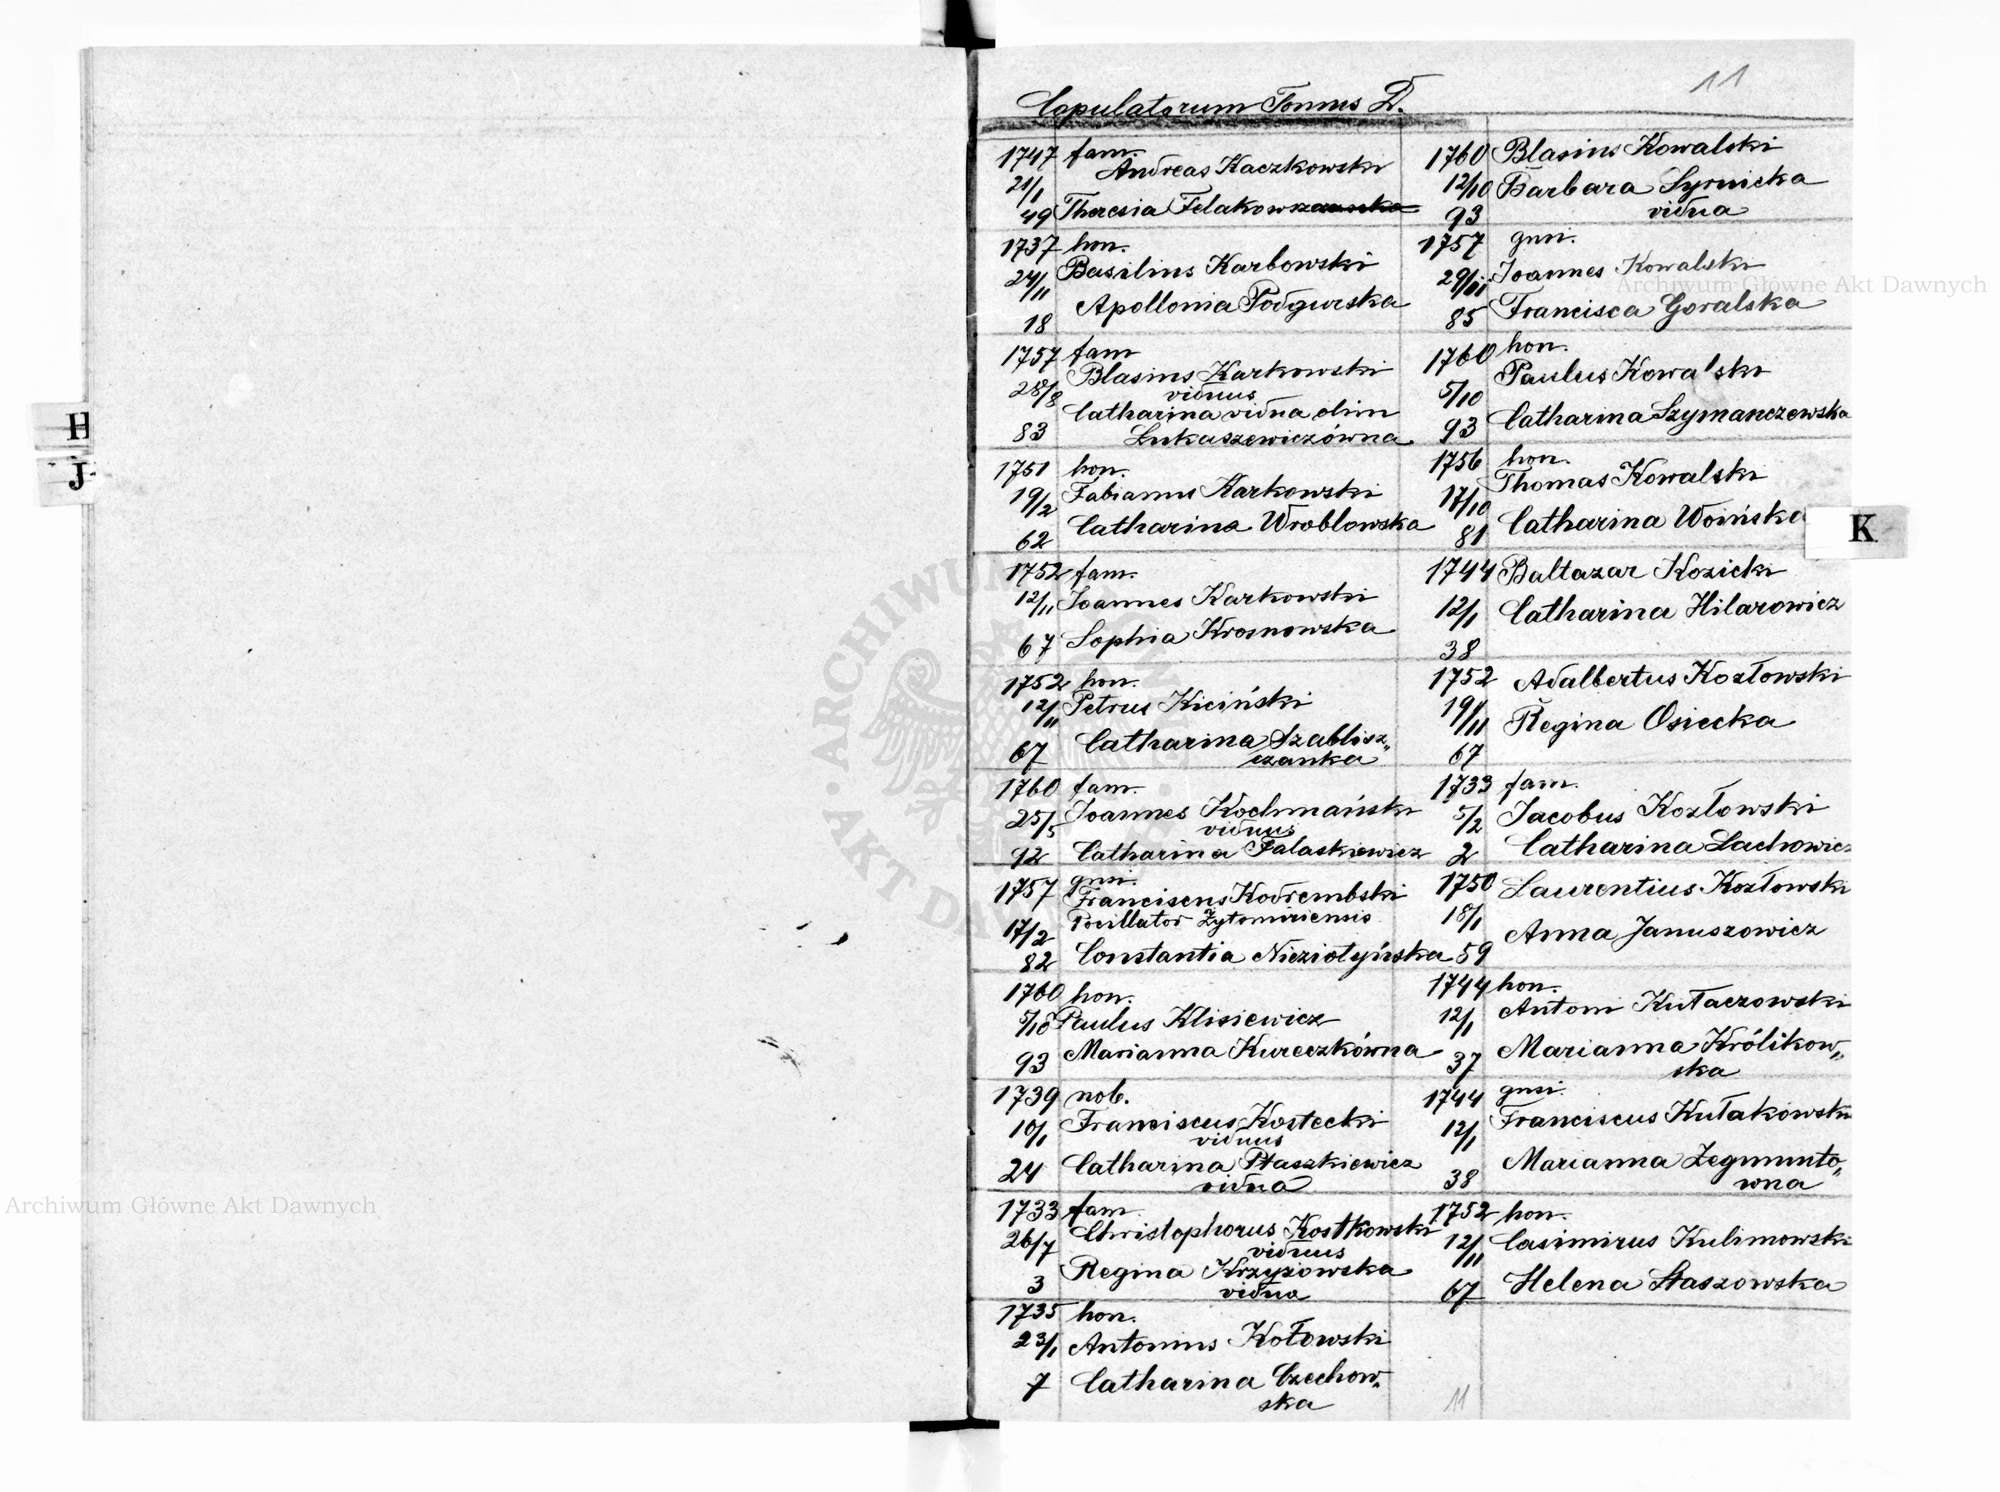 11
Copulatorum Tomus D.
1747 fam.
Andreas Kaczkowski
21/1
49 Theresia Felakow
1737 hon.
24/11 Basilius Karbowski
Apollonia Podgurska
18
1757 fam
28/8 Blasius Karkowski
viduus
Catharina vidua olim
83 Lukaszewiczówna
1751 hon.
19/2 Fabianus Karkowski
62 Catharina Wroblowska
1752 fam.
12/11 Joannes Karkowski
67 Sophia Krosnowska
1752 hon.
12/11 Petrus Kiciński
67 Catharina Szablisz„
czanka
1760 fam.
25/5 Joannes Kochmański
viduus
92 Catharina Falaskiewicz
1757 gnsi.
Franciscus Kodrembski
17/2 Pocillator Żytomiriensis
82 Constantia Nieziołyńska
1760 hon.
5/10 Paulus Klisiewicz
93 Marianna Kureczkówna
1739 nob.
10/1 Franciscus Kostecki
viduus
24 Catharina Ptaszkiewicz
vidua
1733 fam.
26/7 Christophorus Kostkowski
viduus
3 Regina Krzyżowska
vidua
1735 hon.
23/1 Antonius Kotowski
7 Catharina Czechow„
ska
1760 Blasius Kowalski
12/10 Barbara Syrnicka
93 vidua
1757 gnsi.
29/11 Joannes Kowalski
85 Francisca Goralska
1760 hon.
Paulus Kowalski
5/10
93 Catharina Szymanczewska
1756 hon.
17/10 Thomas Kowalski
81 Catharina Woińska
1744 Baltazar Kozicki
12/1 Catharina Hilarowicz
38
1752 Adalbertus Kozłowski
19/11 Regina Osiecka
67
1733 fam.
5/2 Jacobus Kozłowski
2 Catharina Lachowicz
1750 Laurentius Kozłowski
18/1
59 Anna Januszowicz
1744 hon.
12/1 Antoni Kułaczowski
37 Marianna Królikow„
ska
1744 gnsi.
12/1 Franciscus Kułakowski
38 Marianna Zegmunto„
wna
1752 hon.
12/11 Casimirus Kulimowski
67 Helena Staszowska
11
H
J
K
Archiwum Główne Akt Dawnych
Archiwum Główne Akt Dawnych
ARCHIWUM
AKT DAWNYCH